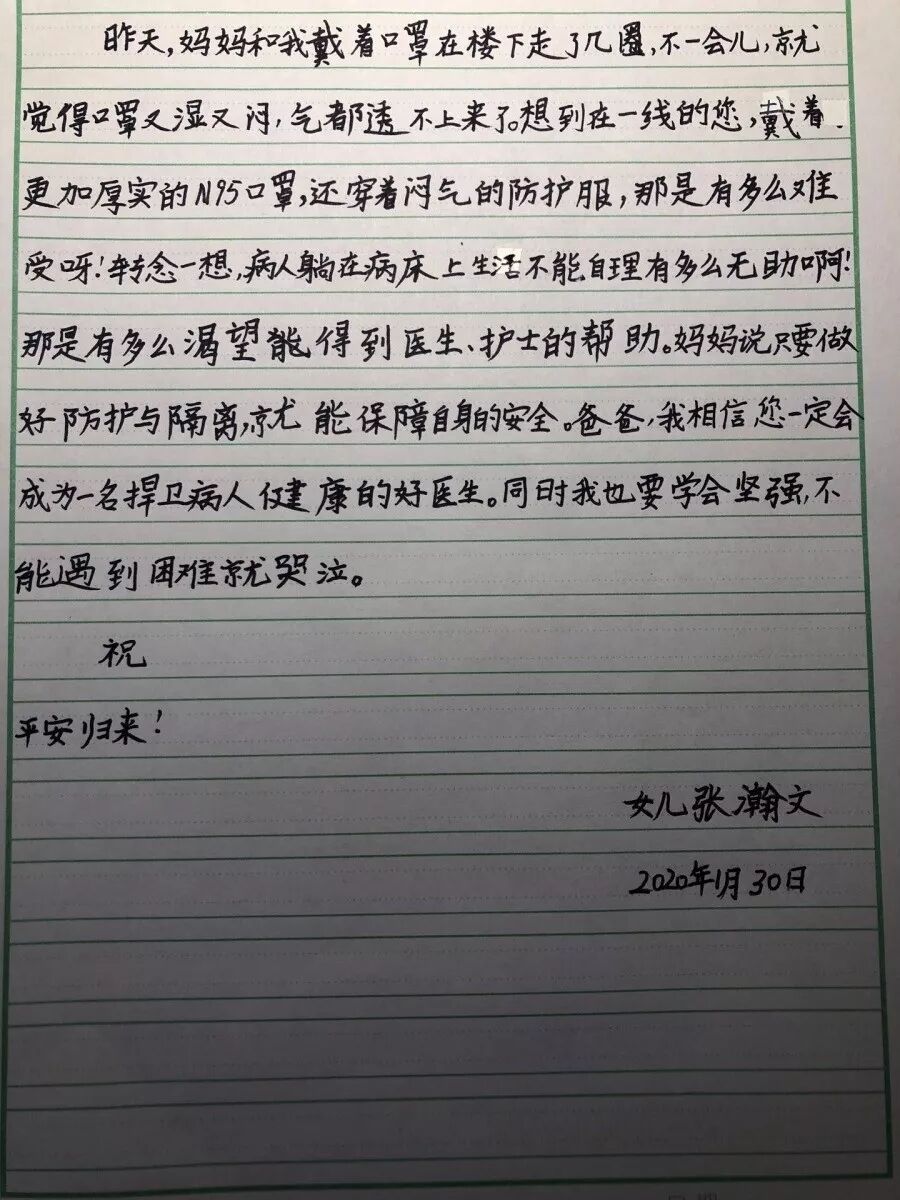 昨天,妈妈和我戴着口罩在楼下走了几圈,不一会儿,就
觉得口罩又湿又闷,气都透不上来了。想到在一线的您,戴着
更加厚实的N95口罩,还穿着闷气的防护服,那是有多么难
受呀!转念一想,病人躺在病床上生活不能自理有多么无助啊!
那是有多么渴望能得到医生、护士的帮助。妈妈说只要做
好防护与隔离,就能保障自身的安全。爸爸,我相信您一定会
成为一名捍卫病人健康的好医生。同时我也要学会坚强,不
能遇到困难就哭泣。
祝
平安归来!
女儿张瀚文
2020年1月30日